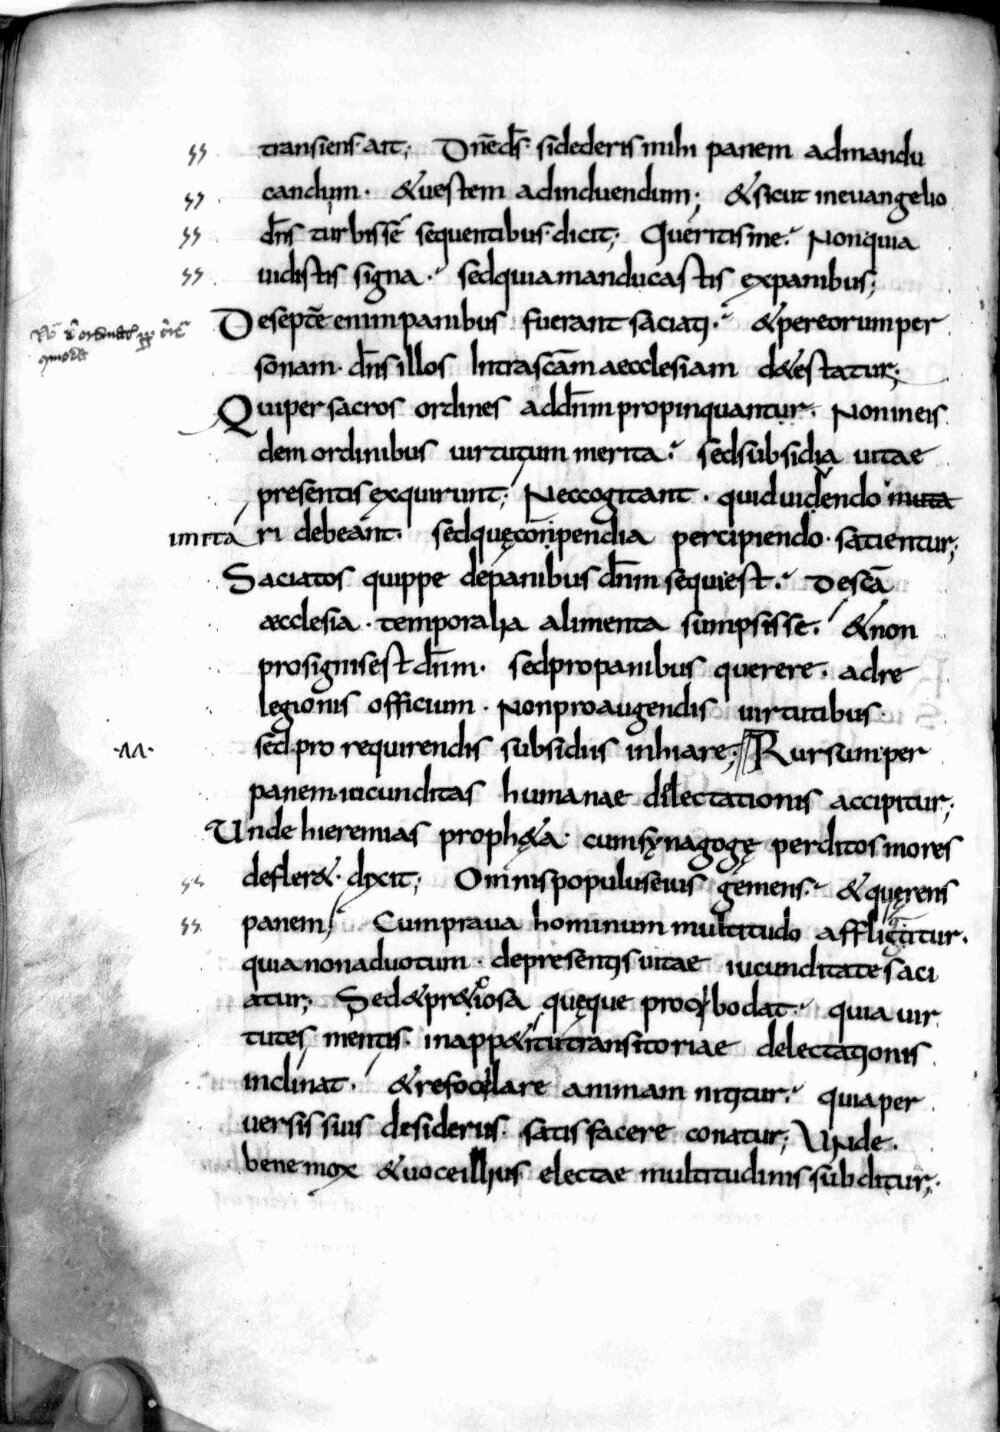 transiens ait; Dn̄e ds̄ si dederis mihi panem ad mandu
candum · & uestem ad induendum; & sicut in euangelio
dn̄s turbis sē sequentibus dicit; Queritis me · Non quia
uidistis signa · sed quia manducastis ex panibus;
De septē enim panibus fuerant saciati · & per eorum per
sonam · dn̄s illos Intra scām aecclesiam d&estatur;
Qui per sacros ordines ad dn̄m propinquantur · Non in eis
dem ordinibus uirtutum merita · sed subsidia uitae
presentis exquirunt; Nec cogitant · quid uidendo muta
imita ri debeant · sed quę conpendia percipiendo · satientur;
Saciatos quippe de panibus dn̄m sequi est · De scā
æcclesia · temporalia alimenta sumpsisse · & non
pro signis est dn̄m · sed pro panibus querere · ad re
legionis officium · Non pro augendis uirtutibus
sed pro requirendis subsidiis inhiare; Rursum per
panem iucunditas humanae delectationis accipitur;
Unde hieremias proph&a · cum synagogę perditos mores
defler& · dixit; Omnis populus eius gemens · & quęrens
panem; Cum praua hominum multitudo affligitur ·
quia non ad uotum · de presentis uitae iucunditate saci
atur; Sed & pr&iosa quęque pro cybo dat · quia uir
tutes mentis · in app&itu transitoriae delectationis
inclinat · & refocelare animam nititur · quia per
uersis suis desideriis · satisfacere conatur; Unde
bene mox & uoce illius electae multitudinis subditur;